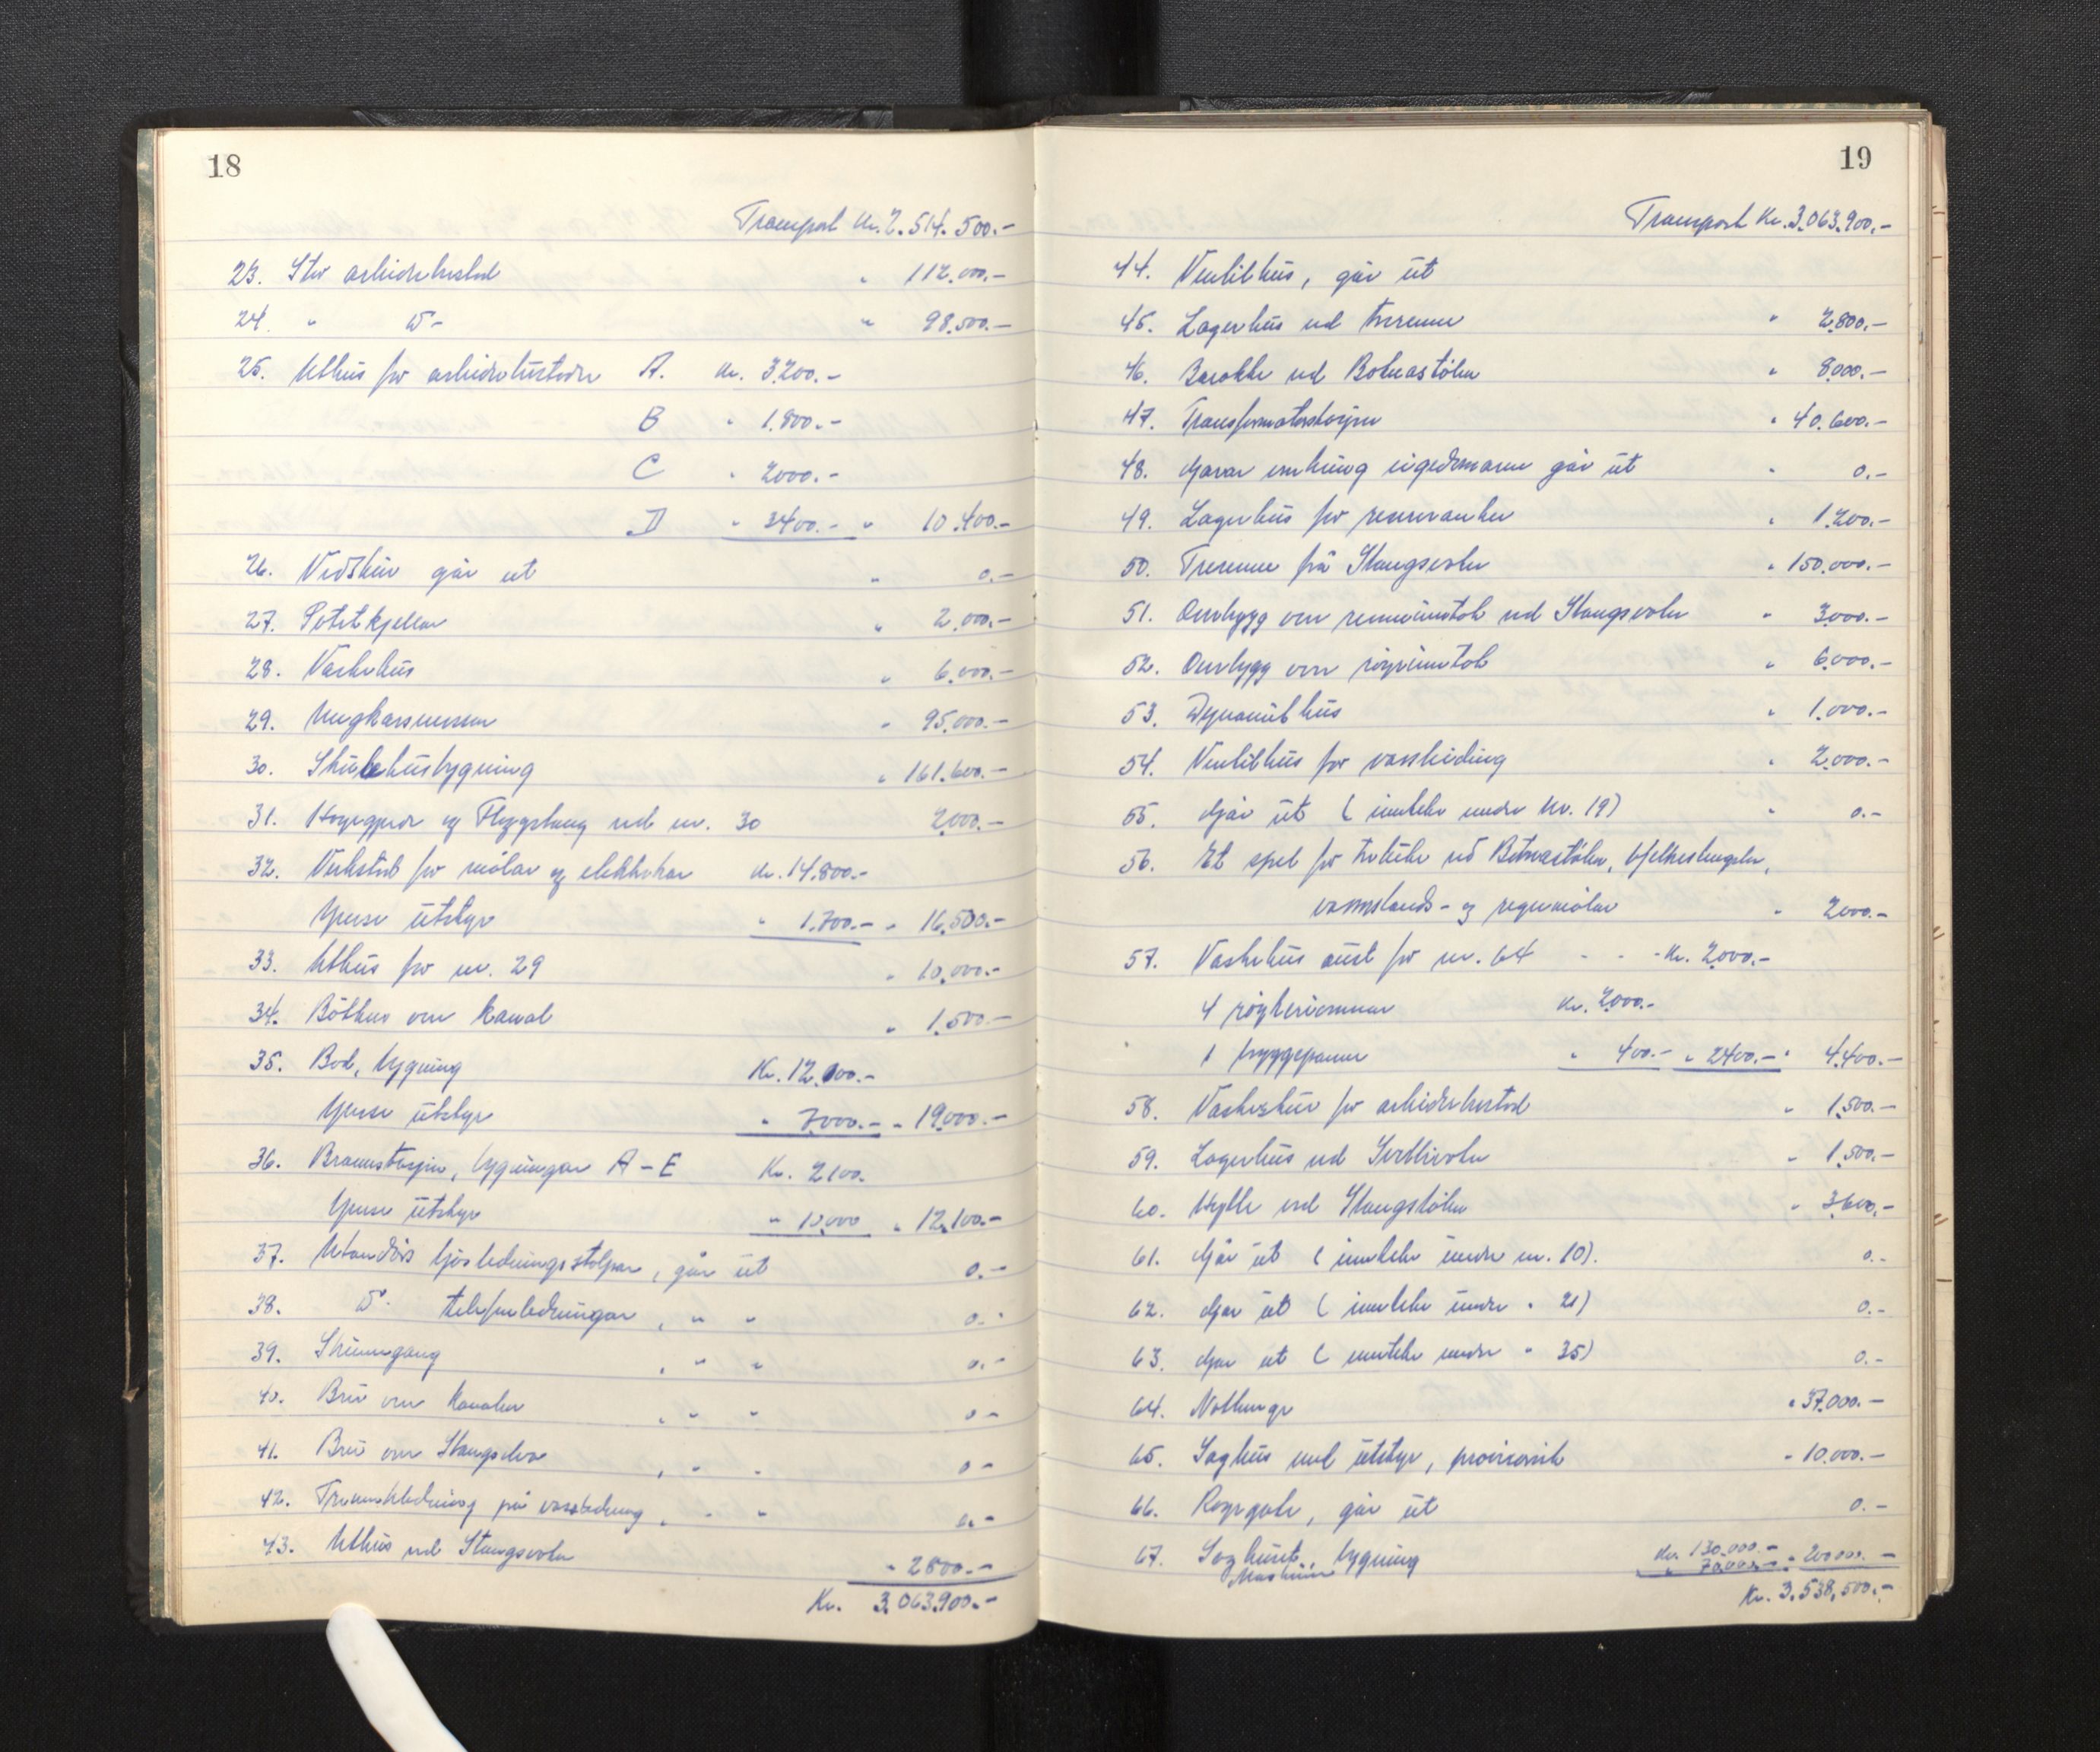 18
Transport Kr. 2.514.500.-
23. Stor arbeidarbustad " 112.000.-
24. " D- " 98.500.-
25. Uthus for arbeidarbustader A. Kr. 3.200.-
B " 1.800.-
C " 2000.-
D " 3400.- " 10.400.-
26. Vedskur går ut " 0.-
27. Potetkjellar " 2.000.-
28. Vaskehus " 6.000.-
29. Ungkarsmessa " 95.000.-
30. Skulehusbygning " 161.600.-
31. Hagegjerde og Flaggstong ved nr. 30 2.000.-
32. Verkstad for målar og elektrikar Kr. 14.800.-
Ymse utstyr " 1.700.- " 16.500.-
33. Uthus for nr. 29 " 10.000.-
34. Båthus ved kanal " 1.500.-
35. Bod, bygning Kr. 12.000.-
Ymse utstyr " 7.000.- " 19.000.-
36. Brannstasjon, bygningar A-E Kr. 2100.
Ymse utstyr " 10.000 " 12.100.-
37. Utandørs ljosledningsstolpar, går ut 0.-
38. D'. telefonledningar, " " 0.-
39. , " " 0.-
40. Bru over kanalen , " " 0-
41. Bru over Stangselva , " " 0-
42. på vassledning, " " 0.-
43. Uthus ved Stangsvatn " 2800.-
Kr. 3.063.900.-
19
Transport Kr. 3.063.900.-
44. Ventilhus, går ut
45. Lagerhus ved trerenne " 2.800.-
46. Barakke ved Botnastølen " 8.000.-
47. Transformatorstasjon " 40.600.-
48. Gjerde omkring eigedomane går ut " 0.-
49. Lagerhus for " 1.200.-
50. Trerenne frå Stangsvatn " 150.000.-
51. Overbygg over renneinntak ved Stangsvatn " 3.000.-
52. Overbygg over røyrinntak " 6.000.-
53. Dynamithus " 1.000.-
54. Ventilhus for vassleiding " 2.000.-
55. Går ut (innteke under Nr. 19) " 0.-
56. Et spel for ved Botnastølen,
vasstands- og regnmålar " 2000.-
57. Vaskehus aust for nr. 64 - - - Kr. 2.000.-
4 Kr. 2.000.-
1 bryggepanne " 400.- " 2400.- " 4.400.-
58. Vaskeskur for arbeidarbustad " 1.500.-
59. Lagerhus ved " 1.500.-
60. Hytte ved Stangstølen " 3.600.-
61. Går ut (innteke under nr. 10). 0.-
62. Går ut (innteke under " 21) 0.-
63. Går ut (innteke under " 35) 0.-
64. " 37.000.-
65. Saghus med utstyr, provisorisk " 10.000.-
66. Røyrgate, går ut 0.-
67. Saghuset, bygning Kr. 130.000.-
Maskiner " 70.000.- " 200000.-
Kr. 3.538.500.-